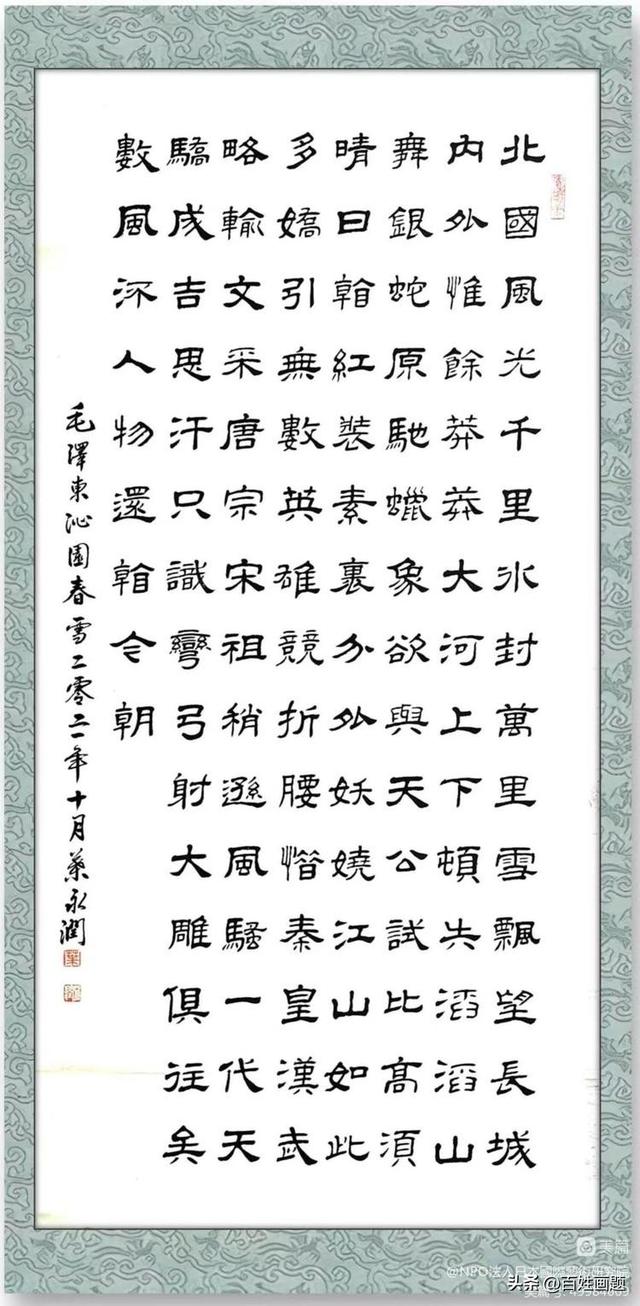 北國風光千里氷封萬里雪飄望長城
内外惟餘莽莽大河上下頓失滔滔山
舞銀蛇原馳蠟象欲與天公試比高須
晴日看紅装素裹分外妖嬈江山如此
多嬌引無數英雄競折腰惜秦皇漢武
略輸文采唐宗宋祖稍遜風騷一代天
驕成吉思汗只識彎弓射大雕俱往矣
數風流人物還看今朝
毛澤東沁園春雪二零二一年十月葉永潤
美篇
@NPO法人日本國際藝術研究院
头条 @百姓画题